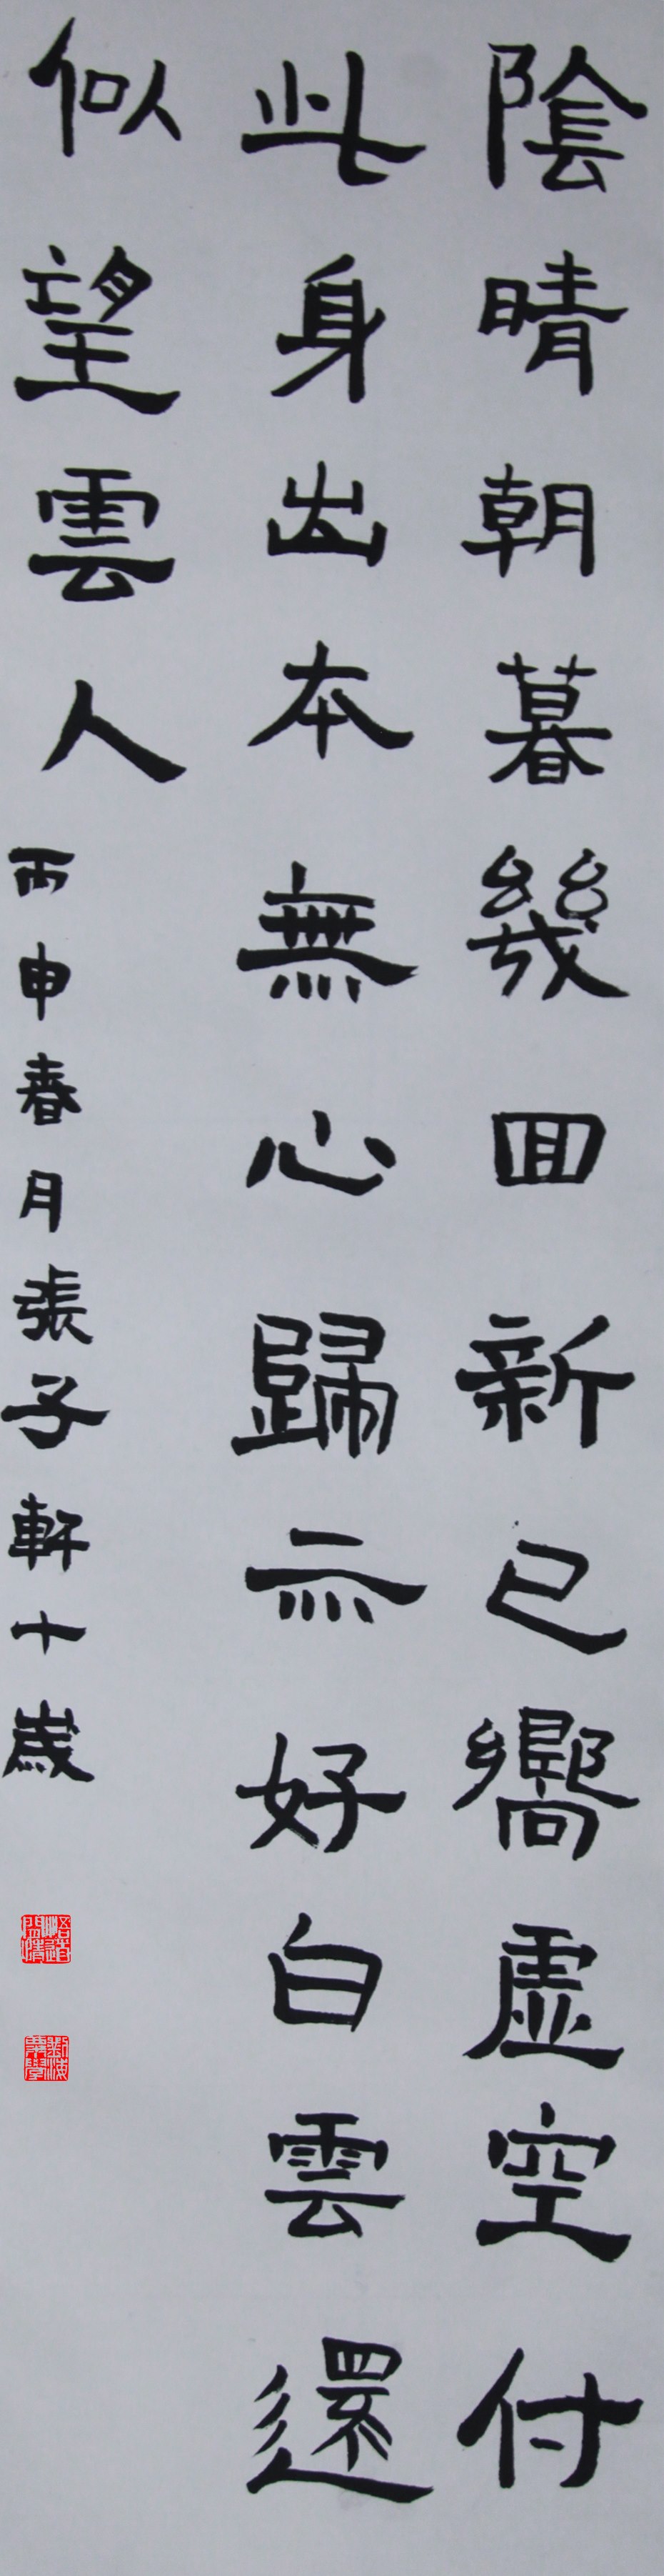 陰晴朝暮幾回新已嚮虛空付
此身出本無心歸亦好白雲還
似望雲人
丙申春月張子軒十歲